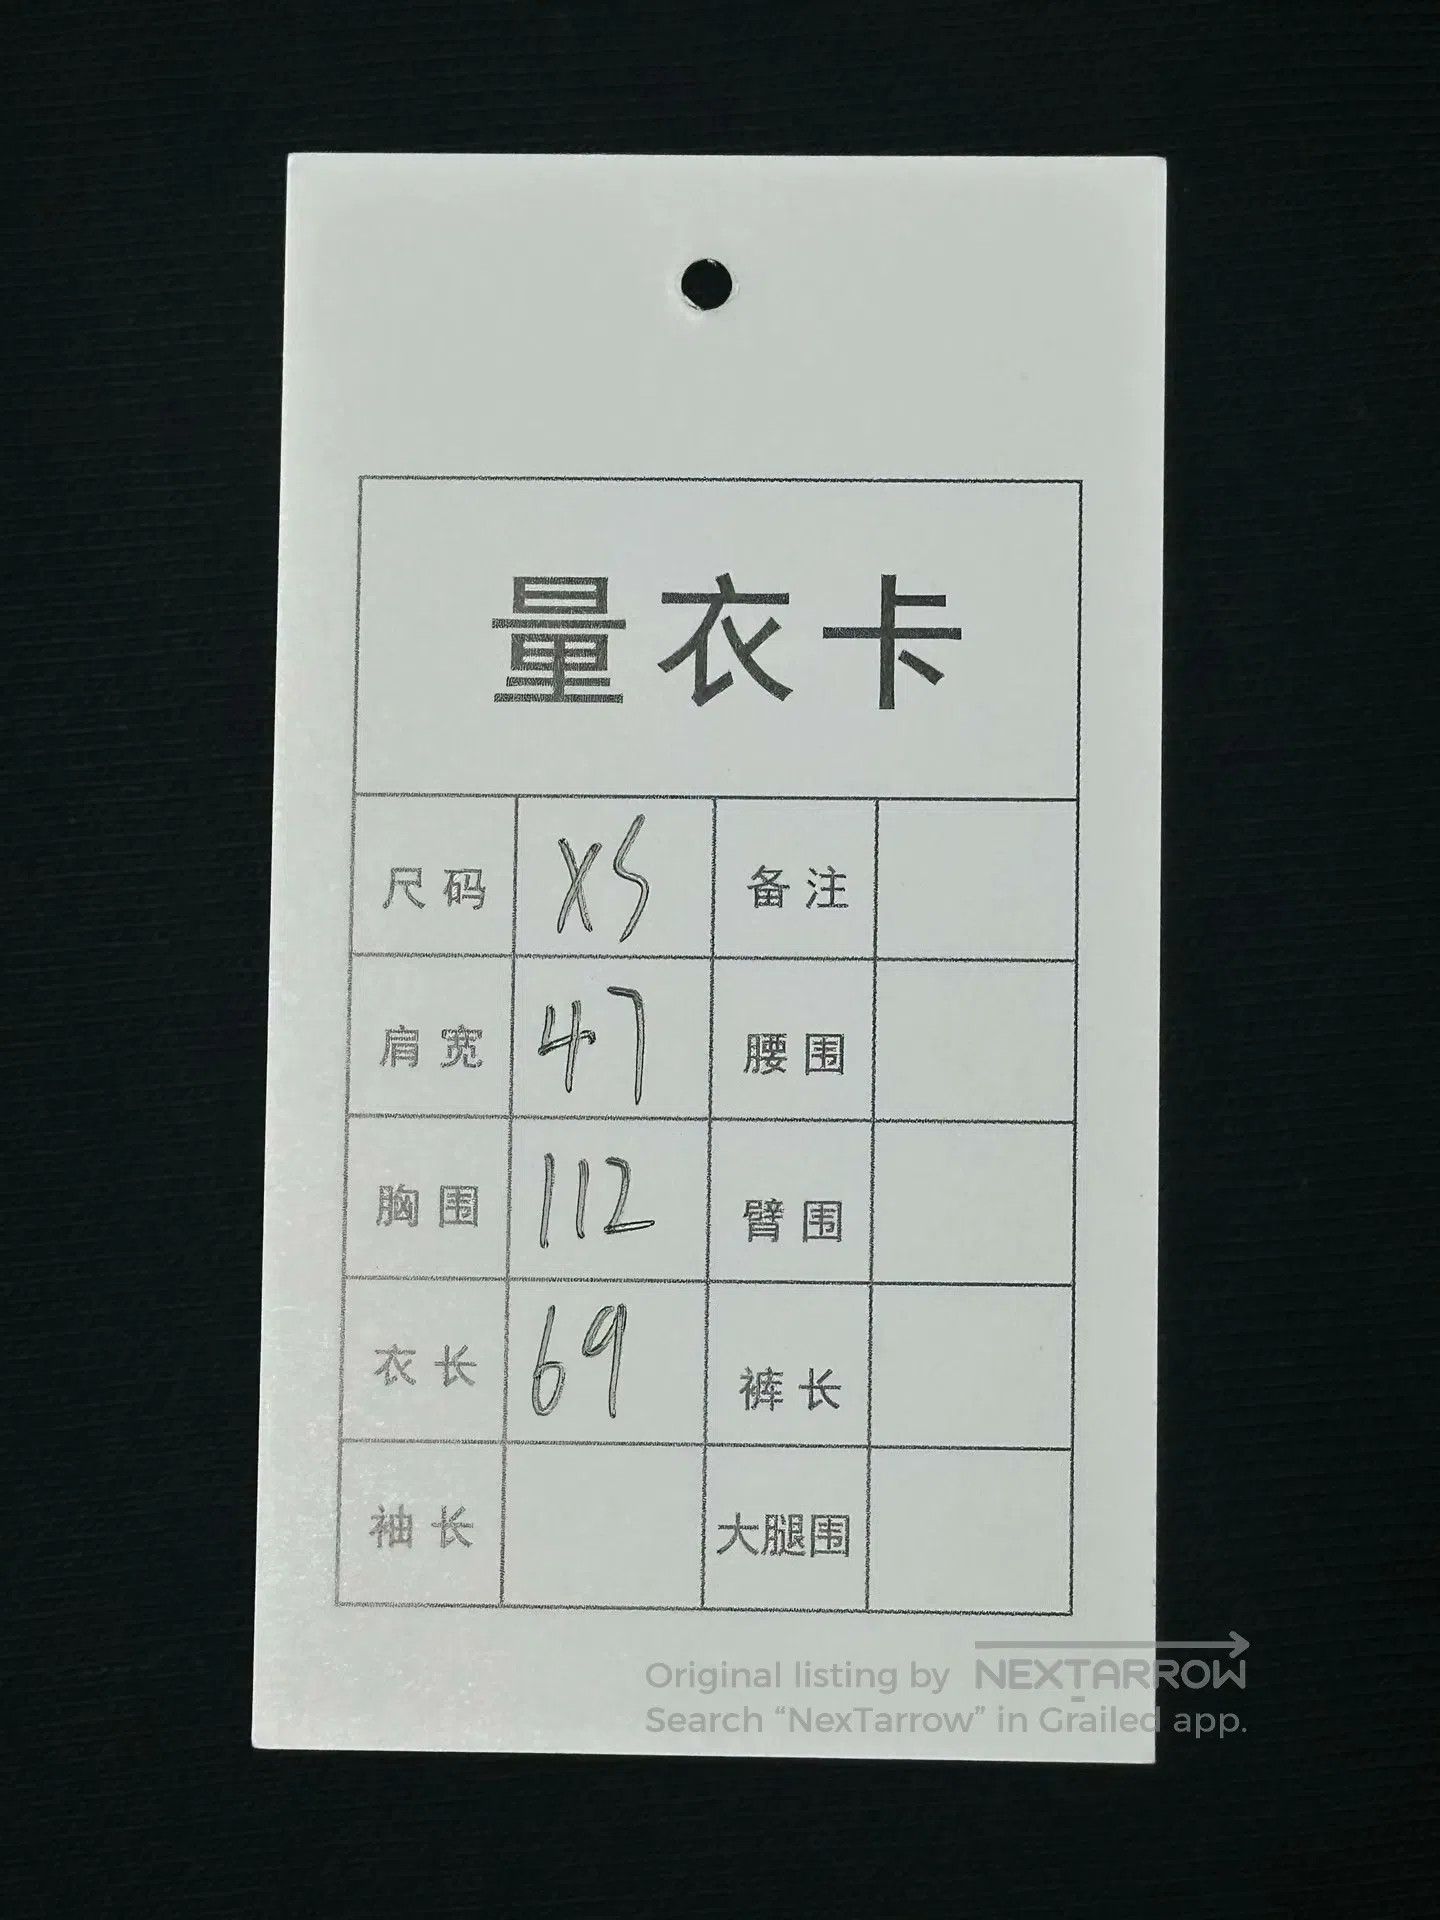 量衣卡
尺码 XS 备注
肩宽 47 腰围
胸围 112 臂围
衣长 69 裤长
袖长 大腿围
Original listing by NEXTARROW
Search “NexTarrow” in Grailed app.